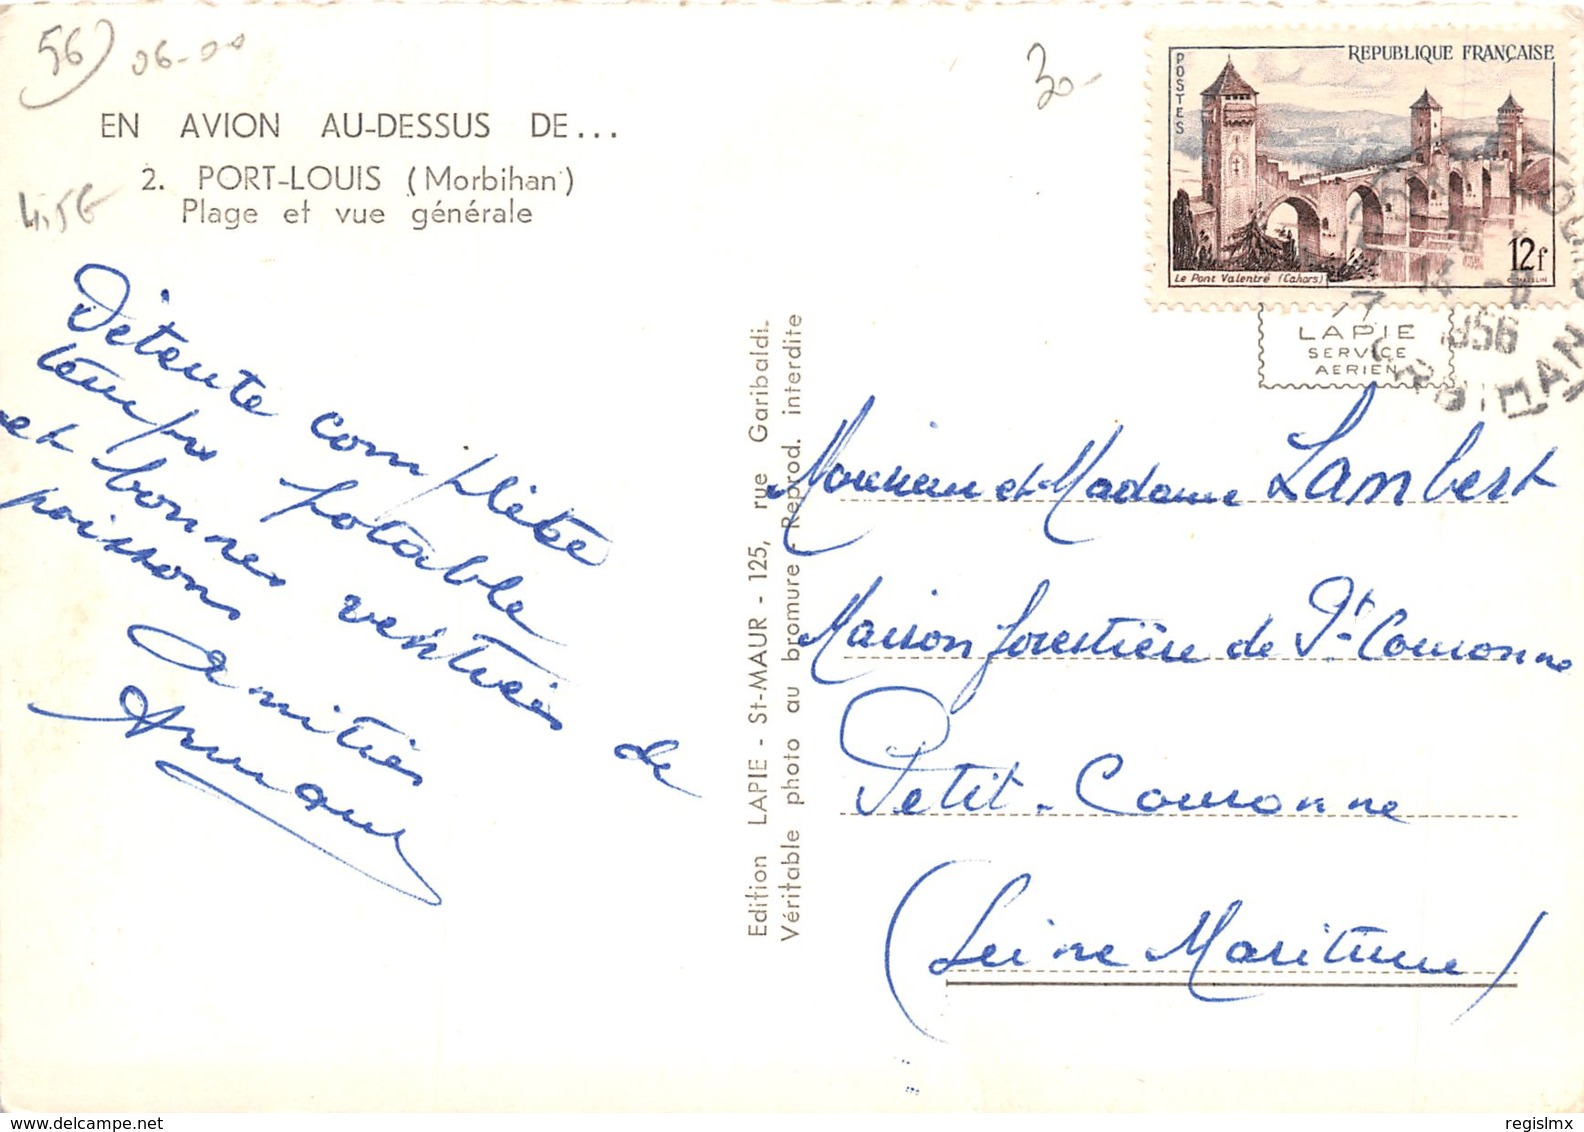 56) 06-00
30-
EN AVION AU-DESSUS DE...
2. PORT-LOUIS (Morbihan)
Plage et vue générale
4.56
Détente complète
temps potable
et bonnes ventrées de
poissons
Amitiés
Edition LAPIE - St-MAUR - 125, rue Garibaldi.
Véritable photo au bromure - Reprod. interdite
POSTES
REPUBLIQUE FRANÇAISE
Le Pont Valentré (Cahors)
12f
LAPIE
SERVICE
AERIEN
PORT LOUIS
14
1956
MORBIHAN
Monsieur et Madame Lambert
Maison forestière de Pt Couronne
Petit-Couronne
(Seine Maritime)
regislmx